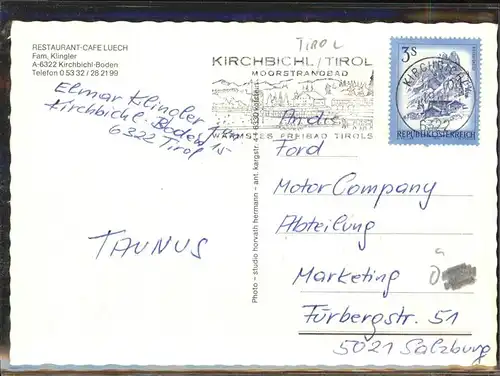 RESTAURANT-CAFE LUECH
Fam. Klingler
A-6322 Kirchbichl-Boden
Telefon 0 53 32 / 28 21 99
Elmar Klingler
Kirchbichl. Boden 15
6322 Tirol
TAUNUS
Photo - studio horvath hermann - ant. kargstr.
TIROL
KIRCHBICHL/TIROL
MOORSTRANDBAD
WÄRMSTES FREIBAD TIROLS
3s
KIRCHBICHL
6322
REPUBLIK ÖSTERREICH
An die
Ford
Motor Company
Abteilung
Marketing
Fürbergstr. 51
5021 Salzburg